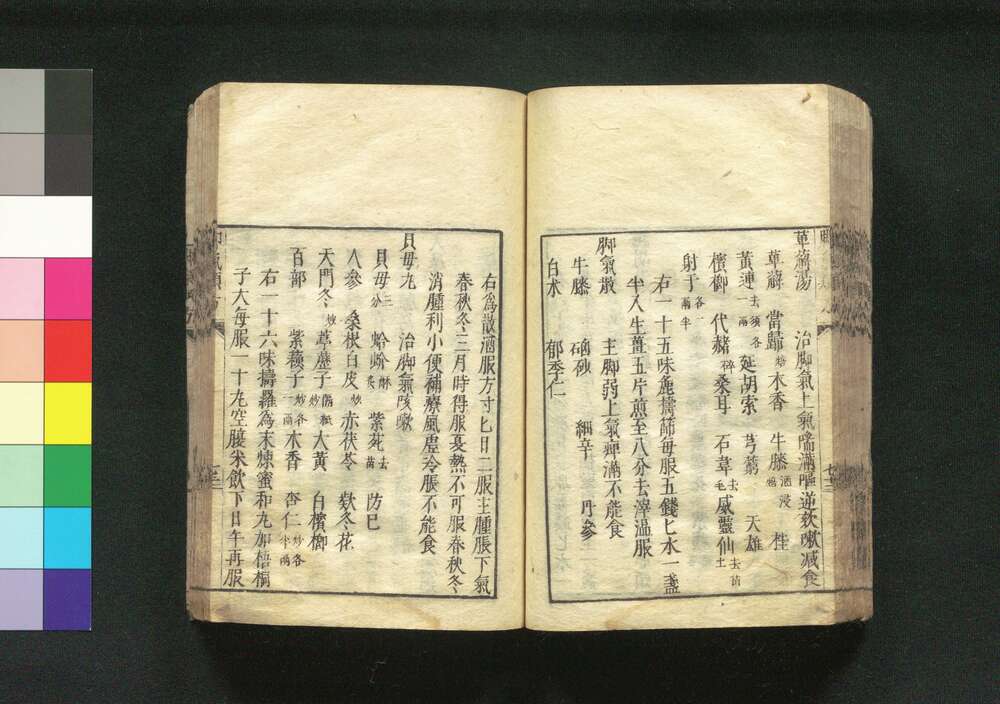 萆薢湯 治脚氣上氣喘滿嘔逆欬嗽减食
萆薢 當歸炒 木香 牛膝酒浸 桂
黃連去須各一兩 延胡索 芎藭 天雄
檳榔 代赭碎 桑耳 石韋去毛 威靈仙去苗土
射干各一兩半
右一十五味麁擣篩每服五錢匕水一盞
半入生薑五片煎至八分去滓溫服
脚氣散 主脚弱上氣痹滿不能食
牛膝 硇砂 細辛 丹參
白朮 郁李仁
七十二
右爲散酒服方寸匕日二服主腫脹下氣
春秋冬三月時得服憂熱不可服春秋冬
消腫利小便補療風虛冷脹不能食
貝母丸 治脚氣咳嗽
貝母三分 蛤蚧酥炙 紫菀去苗 防已
人參 桑根白皮炒 赤茯苓 欵冬花
天門冬炒 葶藶子隔紙炒 大黃 白檳榔
百部 紫蘇子炒各一兩 木香 杏仁炒各半兩
右一十六味擣羅爲末煉蜜和丸如梧桐
子大每服一十九空腹米飲下日午再服